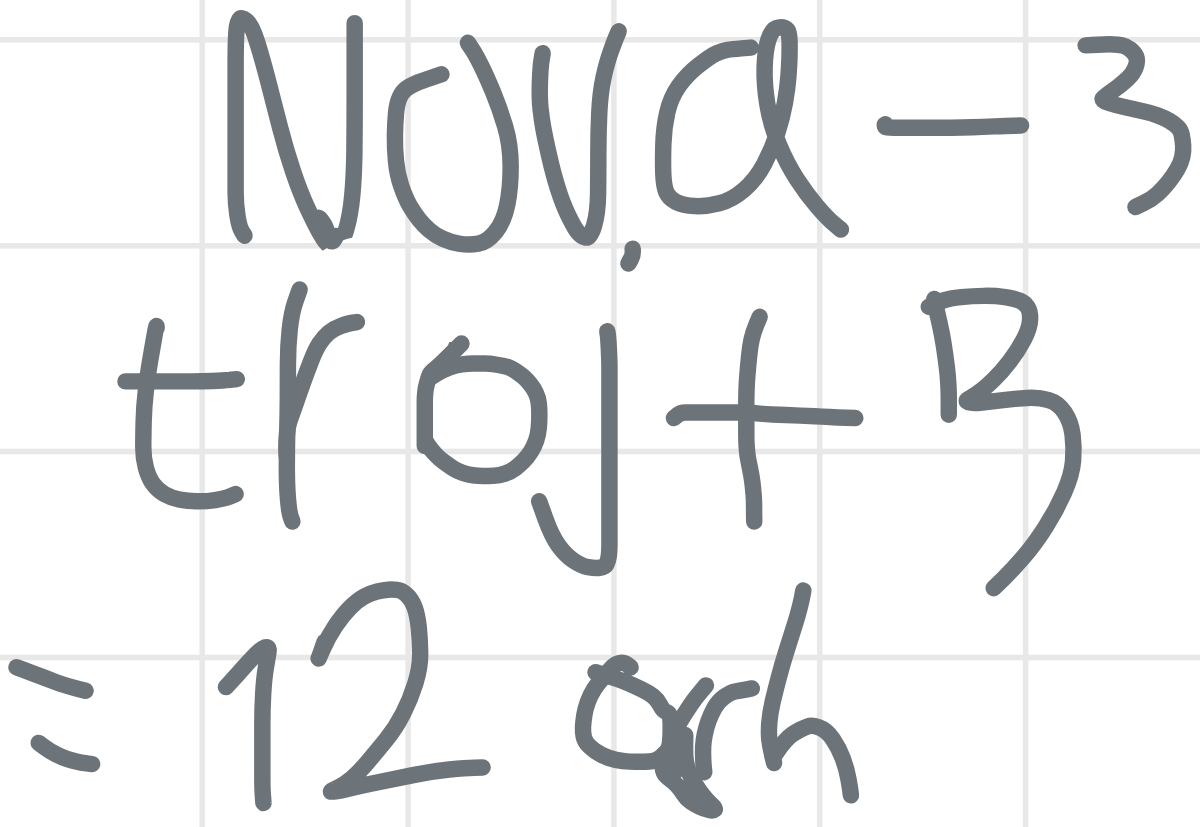 Nova - 3
troj + 3
= 12 arh